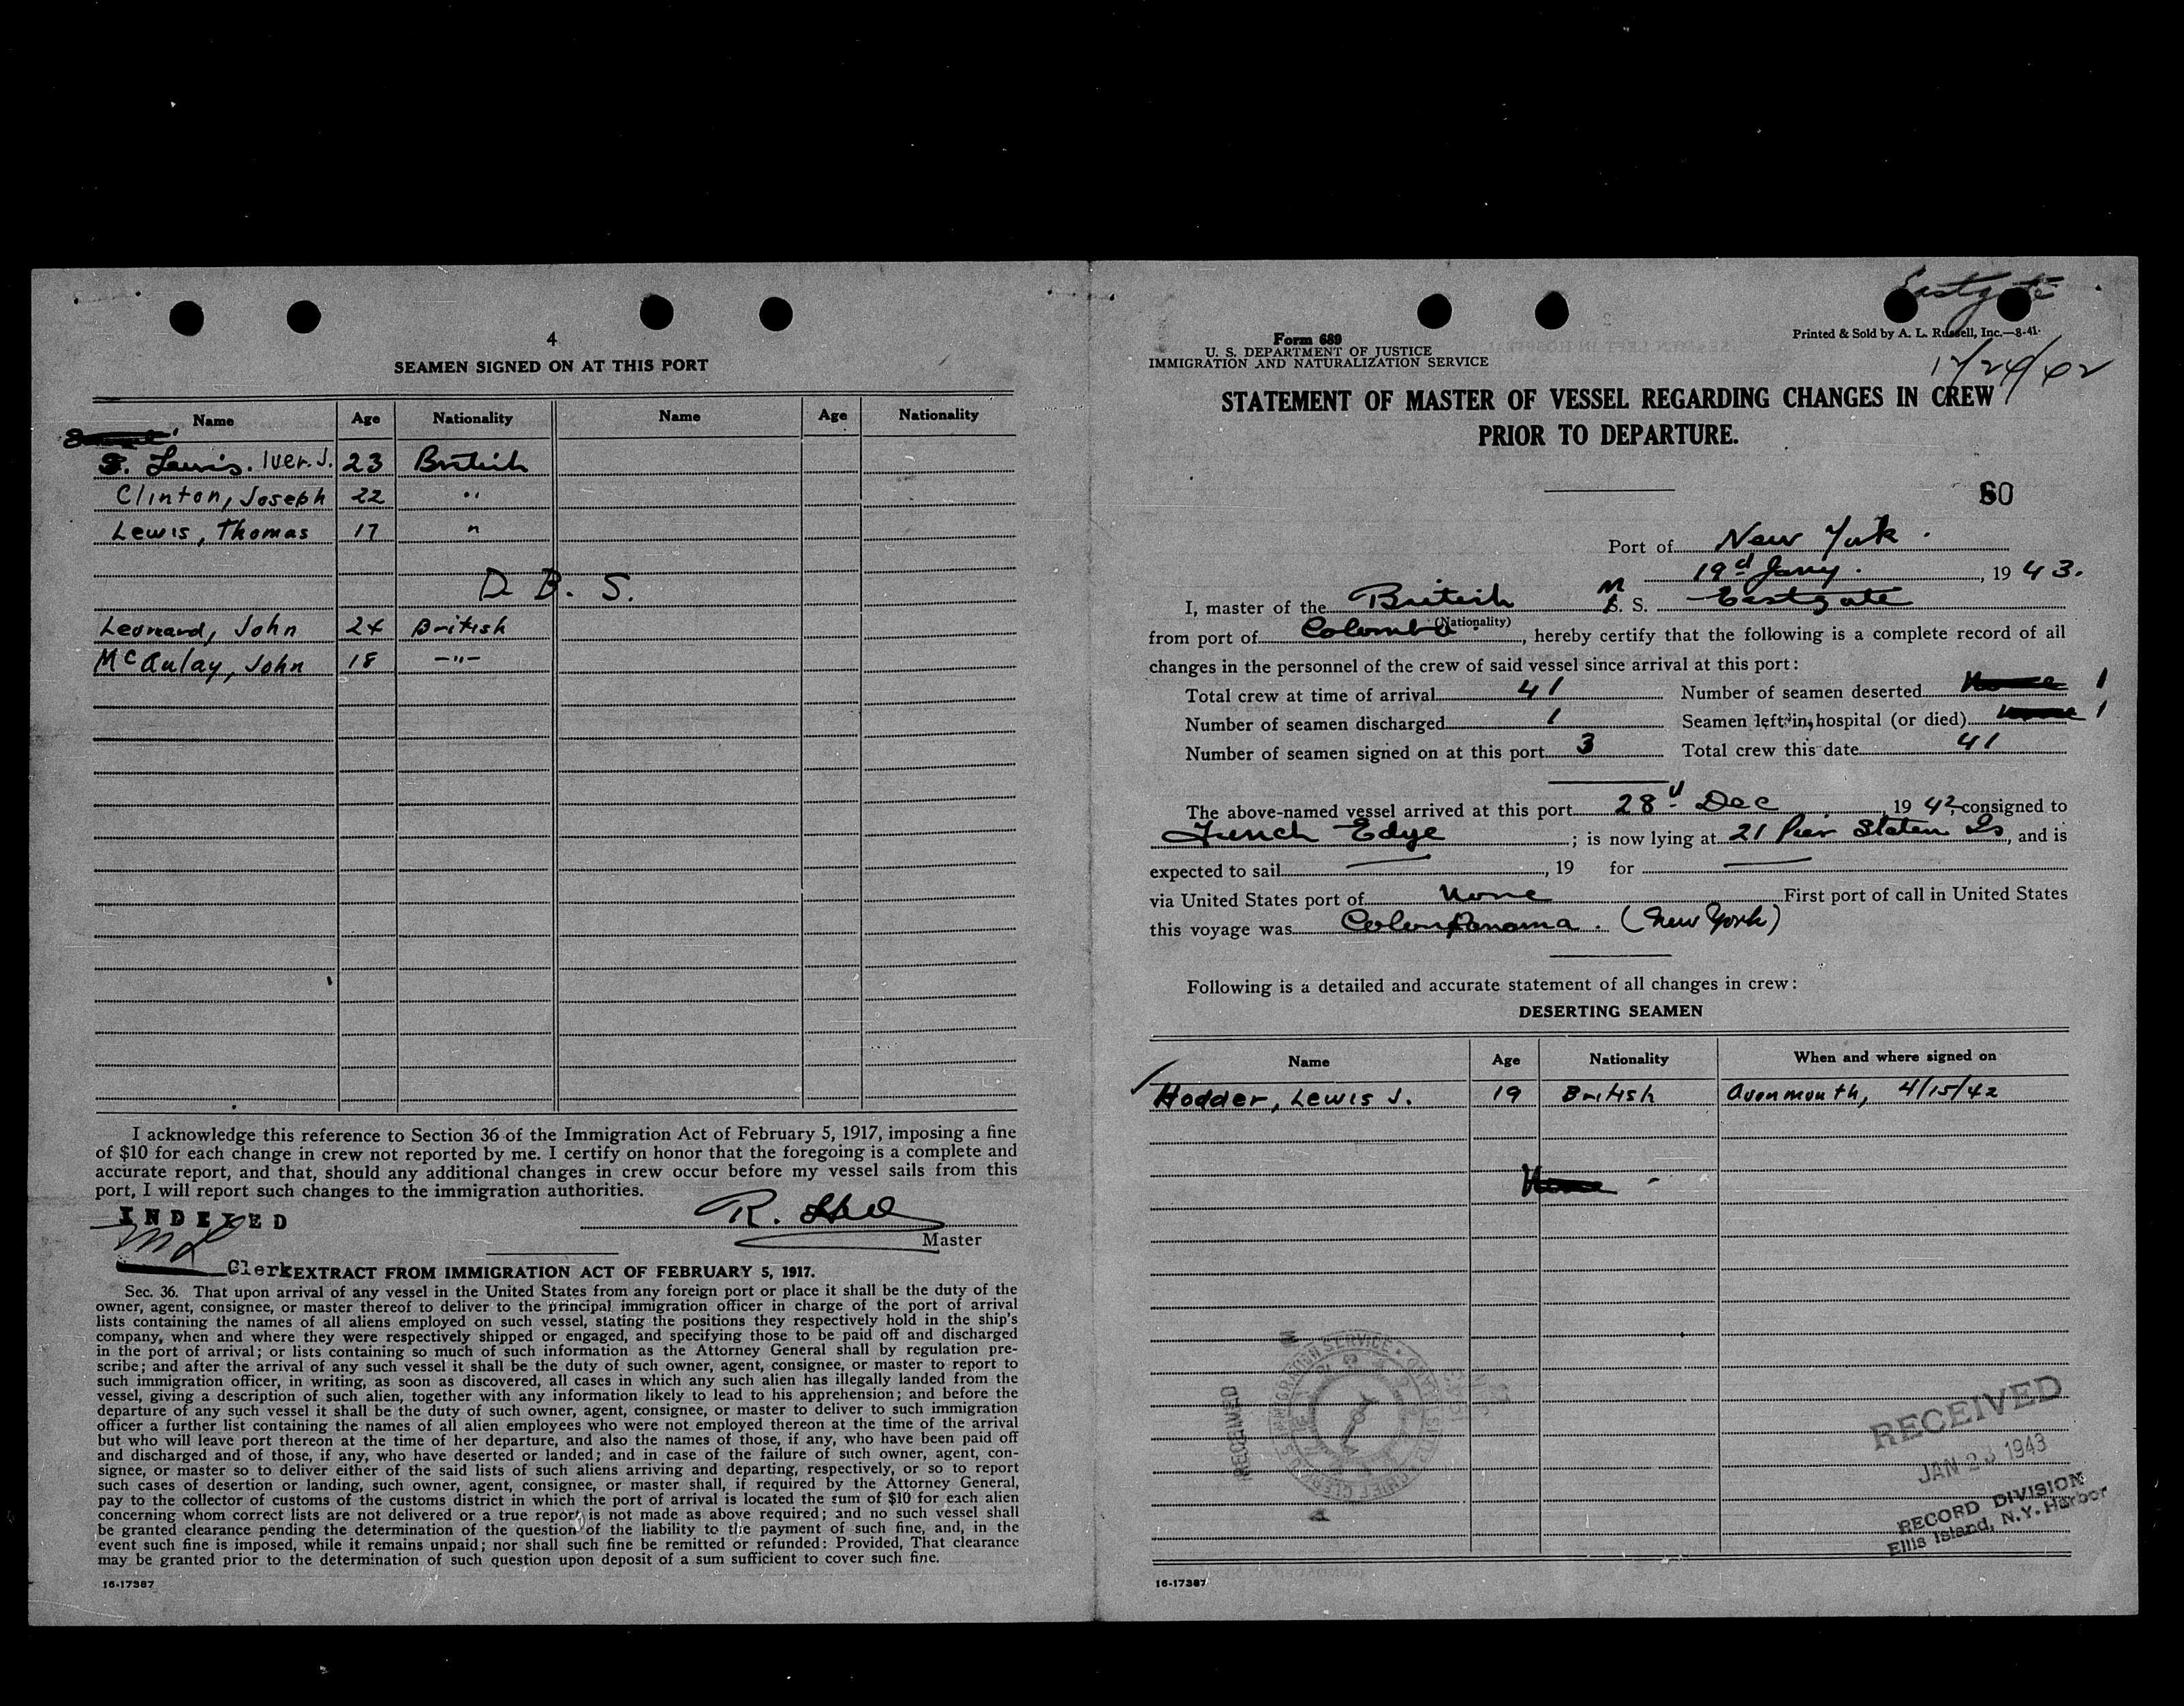 4
SEAMEN SIGNED ON AT THIS PORT
Name Age Nationality Name Age Nationality
Lewis. Iver. J. 23 British
Clinton, Joseph 22 "
Lewis, Thomas 17 "
D. B. S.
Leonard, John 24 British
McAulay, John 18 -"-
I acknowledge this reference to Section 36 of the Immigration Act of February 5, 1917, imposing a fine
of $10 for each change in crew not reported by me. I certify on honor that the foregoing is a complete and
accurate report, and that, should any additional changes in crew occur before my vessel sails from this
port, I will report such changes to the immigration authorities.
INDEXED
R.
Master
Clerk
EXTRACT FROM IMMIGRATION ACT OF FEBRUARY 5, 1917.
Sec. 36. That upon arrival of any vessel in the United States from any foreign port or place it shall be the duty of the
owner, agent, consignee, or master thereof to deliver to the principal immigration officer in charge of the port of arrival
lists containing the names of all aliens employed on such vessel, stating the positions they respectively hold in the ship's
company, when and where they were respectively shipped or engaged, and specifying those to be paid off and discharged
in the port of arrival; or lists containing so much of such information as the Attorney General shall by regulation pre-
scribe; and after the arrival of any such vessel it shall be the duty of such owner, agent, consignee, or master to report to
such immigration officer, in writing, as soon as discovered, all cases in which any such alien has illegally landed from the
vessel, giving a description of such alien, together with any information likely to lead to his apprehension; and before the
departure of any such vessel it shall be the duty of such owner, agent, consignee, or master to deliver to such immigration
officer a further list containing the names of all alien employees who were not employed thereon at the time of the arrival
but who will leave port thereon at the time of her departure, and also the names of those, if any, who have been paid off
and discharged and of those, if any, who have deserted or landed; and in case of the failure of such owner, agent, con-
signee, or master so to deliver either of the said lists of such aliens arriving and departing, respectively, or so to report
such cases of desertion or landing, such owner, agent, consignee, or master shall, if required by the Attorney General,
pay to the collector of customs of the customs district in which the port of arrival is located the sum of $10 for each alien
concerning whom correct lists are not delivered or a true report is not made as above required; and no such vessel shall
be granted clearance pending the determination of the question of the liability to the payment of such fine, and, in the
event such fine is imposed, while it remains unpaid; nor shall such fine be remitted or refunded: Provided, That clearance
may be granted prior to the determination of such question upon deposit of a sum sufficient to cover such fine.
16-17387
Eastgate
Form 689
U. S. DEPARTMENT OF JUSTICE
IMMIGRATION AND NATURALIZATION SERVICE
Printed & Sold by A. L. Russell, Inc.—8-41
STATEMENT OF MASTER OF VESSEL REGARDING CHANGES IN CREW
PRIOR TO DEPARTURE.
60
Port of New York.
19d Jany. , 19 43.
I, master of the British M S. S. Eastgate
(Nationality)
from port of Colombo, hereby certify that the following is a complete record of all
changes in the personnel of the crew of said vessel since arrival at this port:
Total crew at time of arrival 41 Number of seamen deserted None 1
Number of seamen discharged 1 Seamen left in hospital (or died) None 1
Number of seamen signed on at this port 3 Total crew this date 41
The above-named vessel arrived at this port 28d Dec, 19 42 consigned to
Funch Edye; is now lying at 21 Pier Staten Is, and is
expected to sail —, 19 for —
via United States port of None First port of call in United States
this voyage was Colon Panama. (New York)
Following is a detailed and accurate statement of all changes in crew:
DESERTING SEAMEN
Name Age Nationality When and where signed on
Hodder, Lewis J. 19 British Avonmouth, 4/15/42
None -
RECEIVED
RECEIVED
JAN 23 1943
RECORD DIVISION
Ellis Island, N.Y. Harbor
16-17387